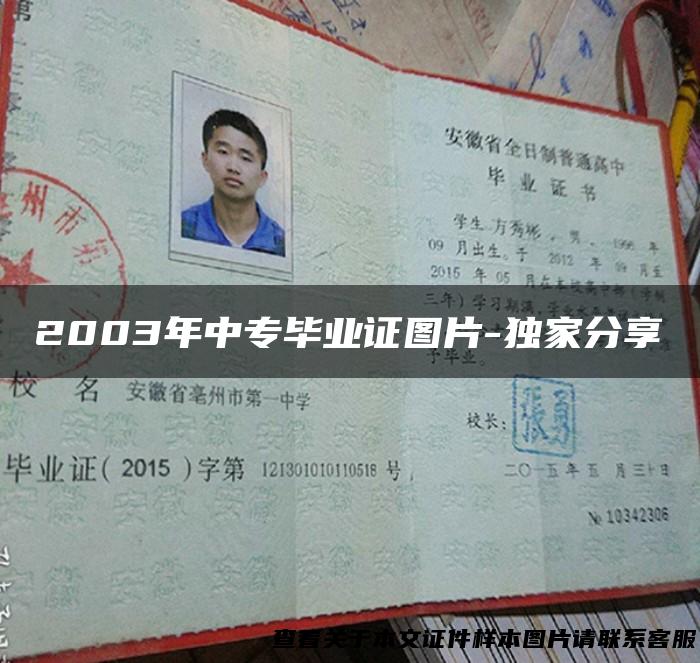 安徽省全日制普通高中
毕业证书
学生 方秀彬 ，男 ，1996 年
09 月出生。于 2012 年 09 月至
2015 年 05 月在本校高中部（学制
三年）学习期满，
2003年中专毕业证图片-独家分享
予毕业。
校 名 安徽省亳州市第一中学
校长：
张勇
毕业证( 2015 )字第 121301010110518 号
二〇一五年 五 月 三十日
№ 10342306
查看关于本文证件样本图片请联系客服